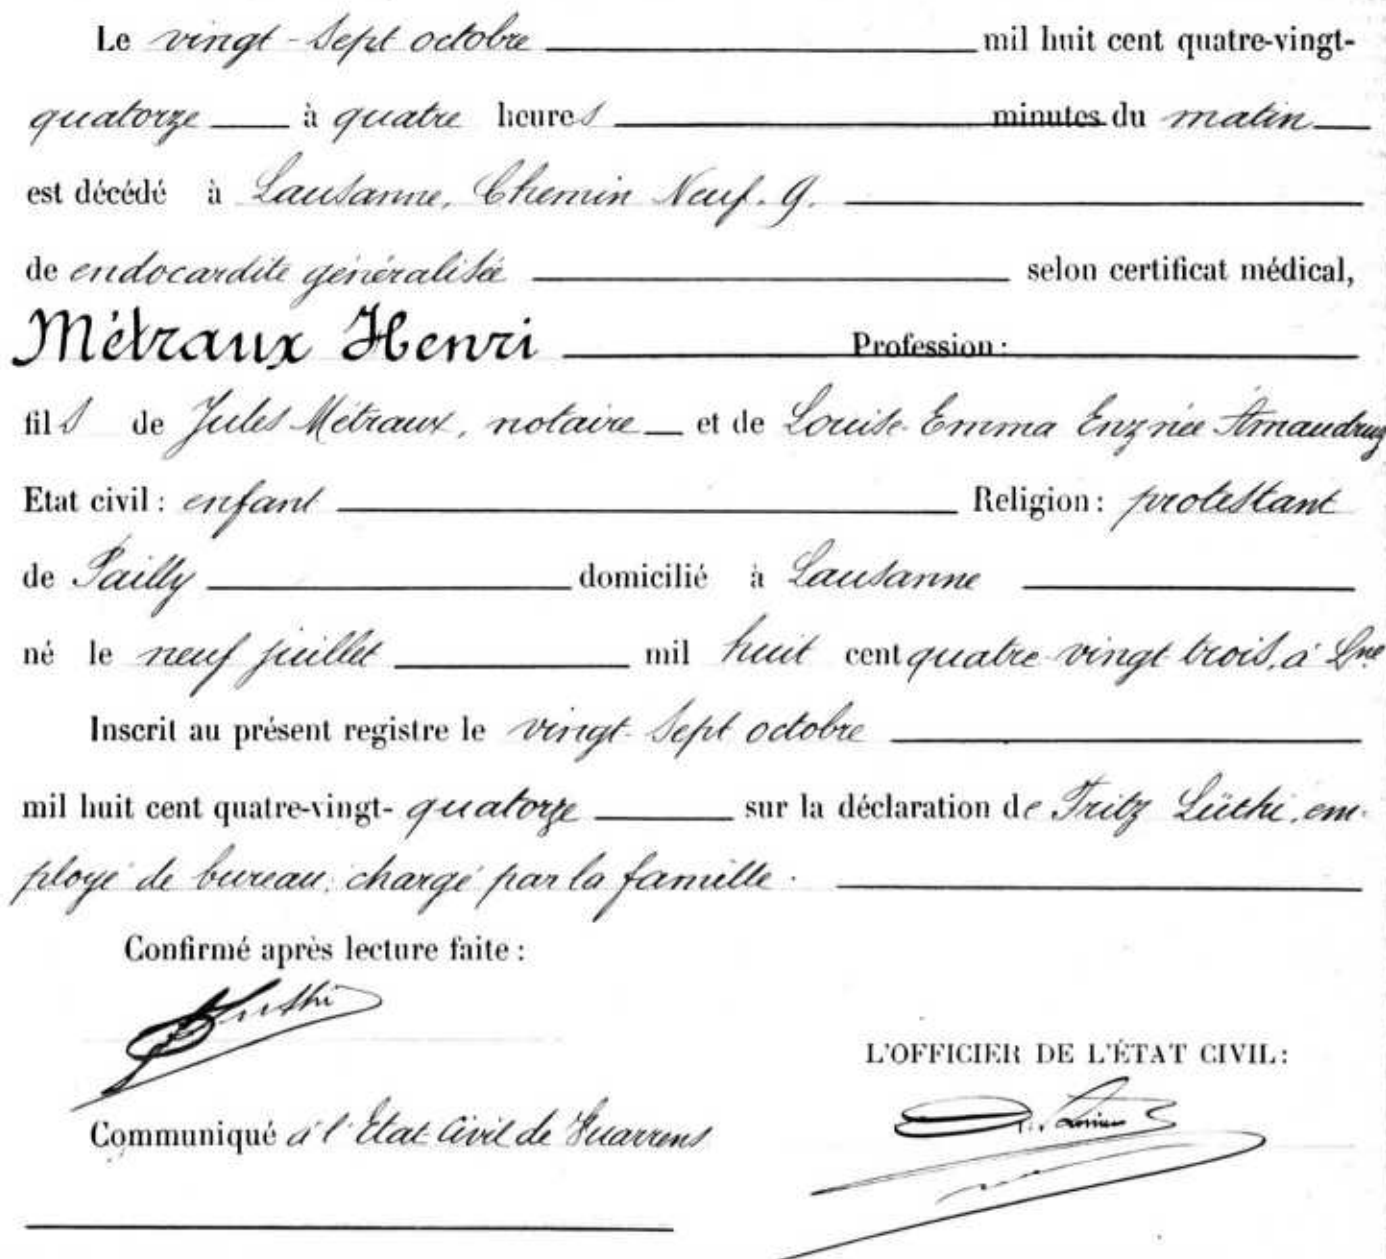 Le vingt-sept octobre mil huit cent quatre-vingt-
quatorze à quatre heures minutes du matin
est décédé à Lausanne, Chemin Neuf. 9.
de endocardite généralisée selon certificat médical,
Métraux Henri Profession:
fils de Jules Métraux, notaire et de Louise-Emma Enz née Amaudruz
Etat civil: enfant Religion: protestant
de Pailly domicilié à Lausanne
né le neuf juillet mil huit cent quatre-vingt-trois, à Lne
Inscrit au présent registre le vingt-sept octobre
mil huit cent quatre-vingt- quatorze sur la déclaration de Fritz Lüthi, em-
ployé de bureau, chargé par la famille.
Confirmé après lecture faite:
Luthi
L'OFFICIER DE L'ÉTAT CIVIL:
Communiqué à l'Etat Civil de Vuarrens